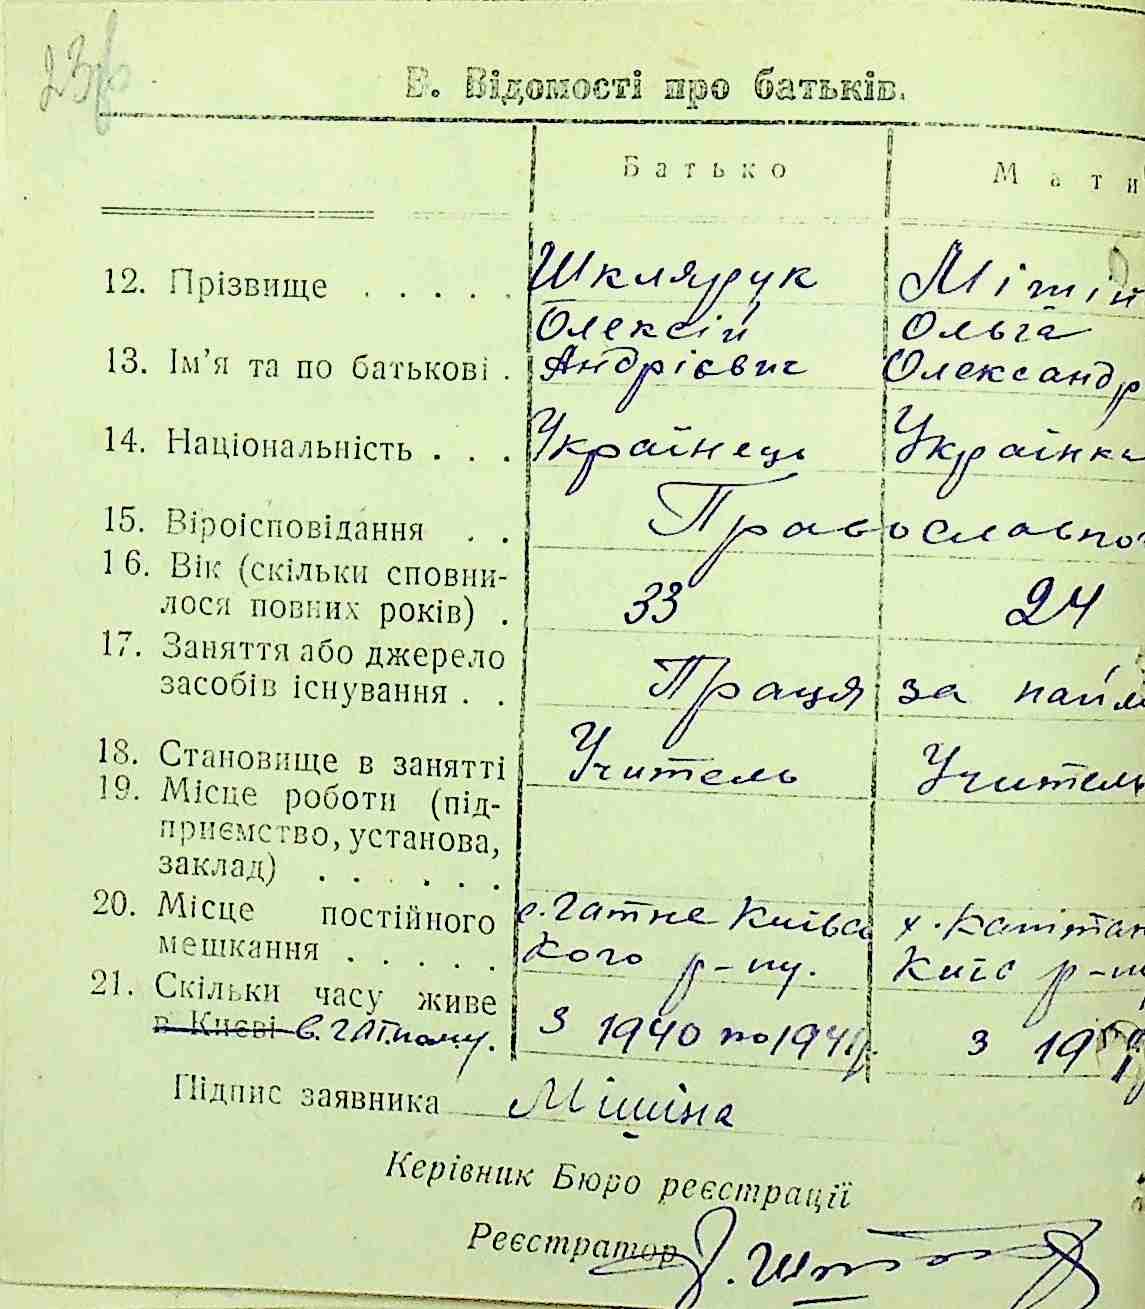 23
Е. Відомості про батьків.
Батько Мати
12. Прізвище . . . . . Шклярук Мішин
Олексій Ольга
13. Ім'я та по батькові . Андрієвич Олександр
14. Національність . . . Українець Українка
15. Віроісповідання . . Православно
16. Вік (скільки сповни-
лося повних років) . 33 24
17. Заняття або джерело
засобів існування . . Праця за найм
18. Становище в занятті Учитель Учитель
19. Місце роботи (під-
приємство, установа,
заклад) . . . . . .
20. Місце постійного с. Гатне Київсь х. Капітан
мешкання . . . . . кого р-ну. Київ р-н
21. Скільки часу живе
в Києві в. Гатному. З 1940 по 1941р. з 19
Підпис заявника Мішина
Керівник Бюро реєстрації
Реєстратор